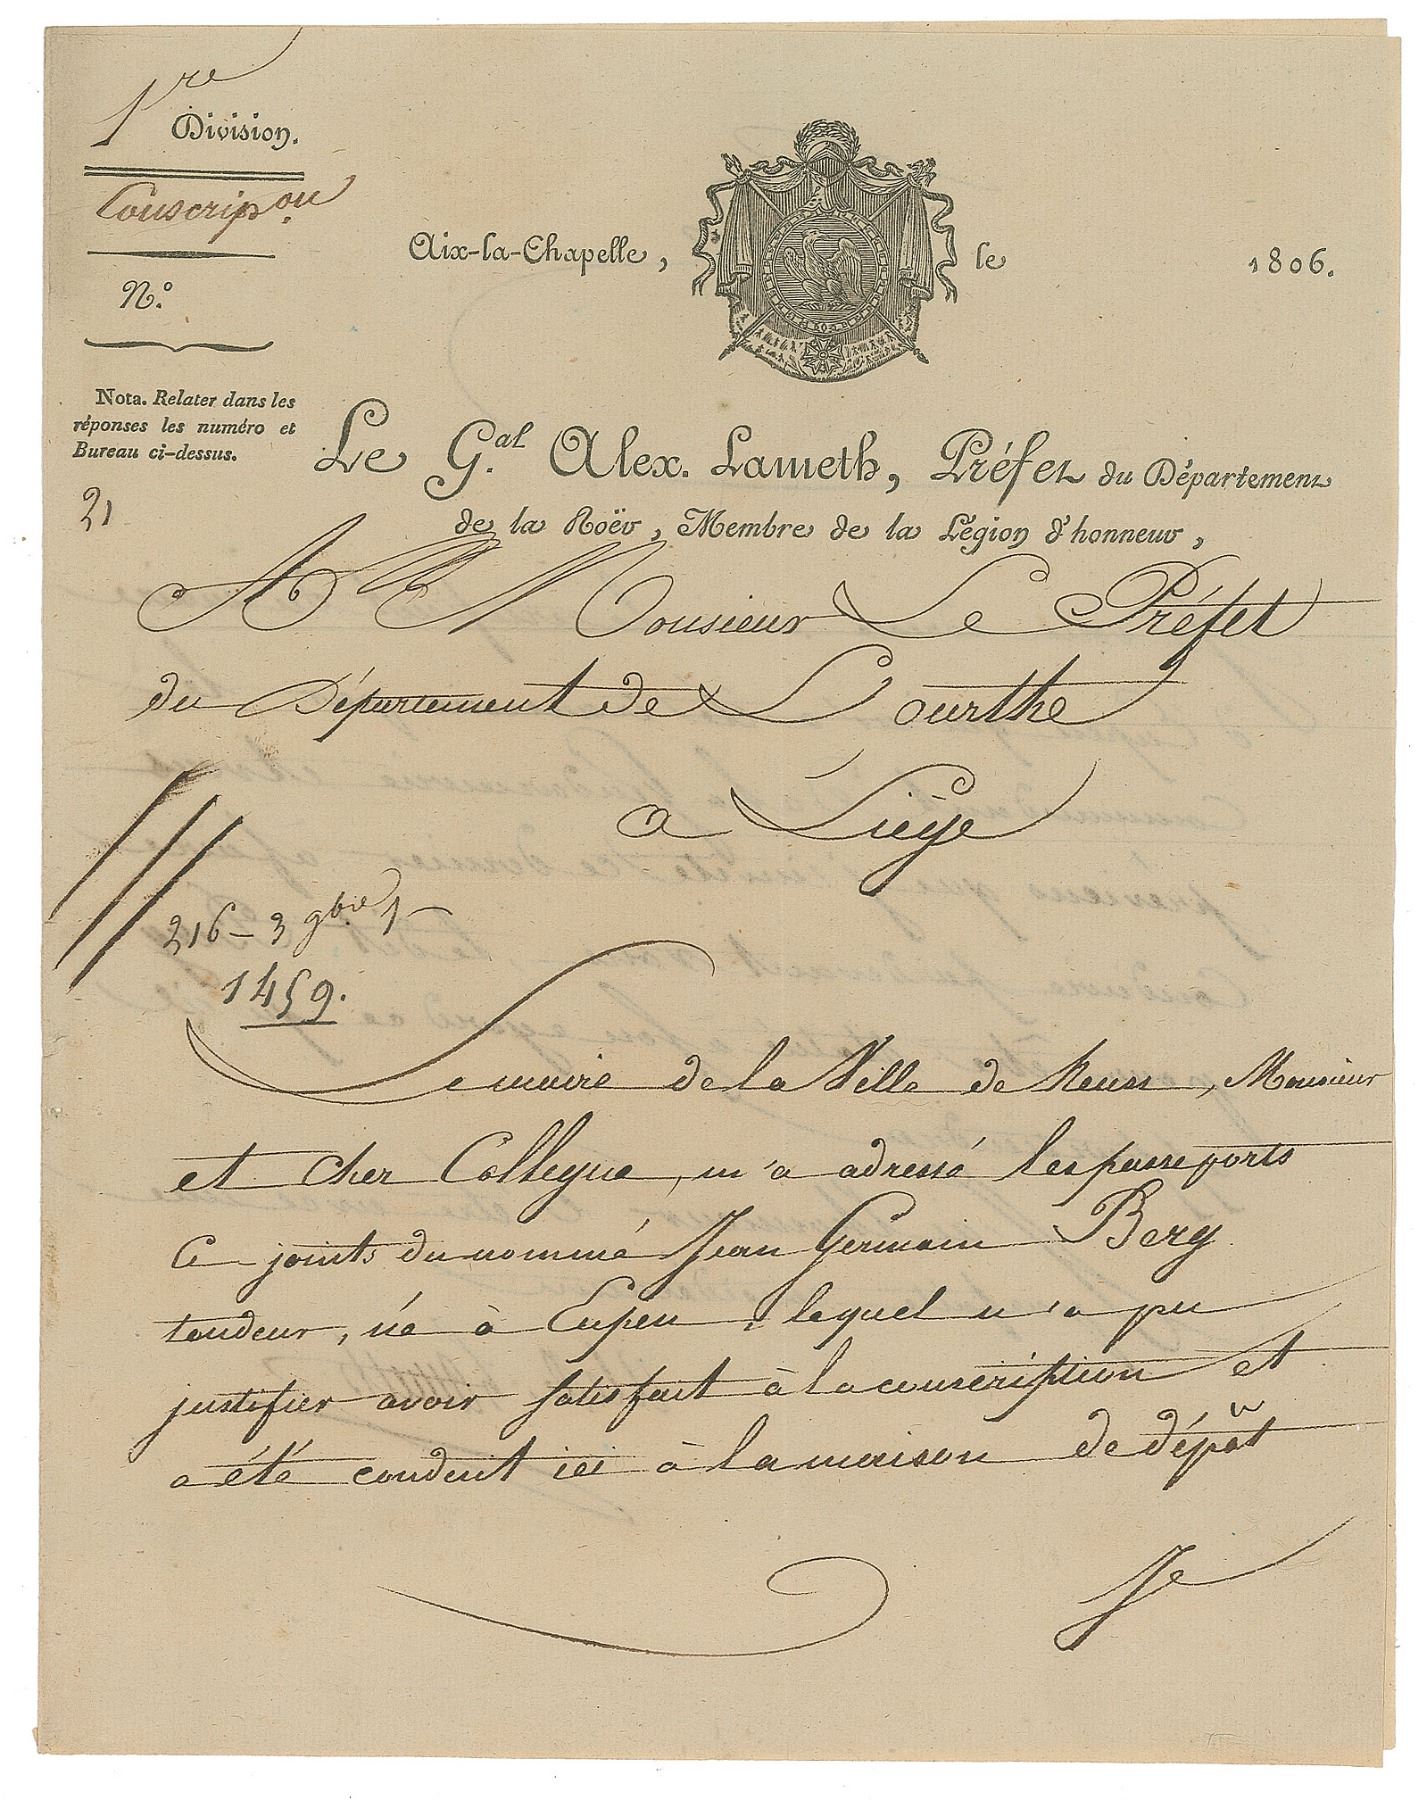 1re
Division.
Conscripon
N.º
Nota. Relater dans les
réponses les numéro et
Bureau ci-dessus.
21
Aix-la-Chapelle, le 1806.
Le G.al Alex. Lameth, Préfet du Département
de la Roër, Membre de la Légion d'honneur,
A Monsieur Le Préfet
du Département de L'ourthe
a Liége
216 - 3 9bre
1459.
Le maire de la Ville de Neuss, Monsieur
et cher Collegue, m'a adressé les passeports
ci joints du nommé Jean Germain Berg
tondeur, né à Eupen, lequel n'a pu
justifier avoir satisfait à la conscription et
a été conduit ici à la maison de dépôt
Je